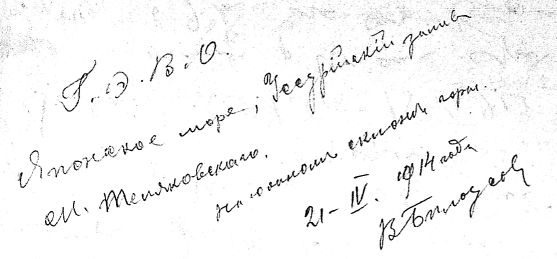 Г. Э. В. О.
Японское море, Уссурійскій заливъ
м. Теляковскаго.
На южномъ склонѣ горы.
21-IV. 1914 года
В Бѣлоусов